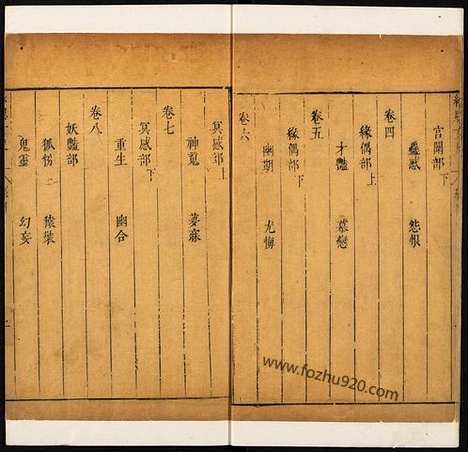 宫闈部下
蠱惑 怨恨
卷四
緣偶部上
才豔 慕戀
卷五
緣偶部下
幽期 尤悔
卷六
冥感部上
神鬼 夢寐
卷七
冥感部下
重生 幽合
卷八
妖豔部
鬼靈 幻妄
www.fozhu920.com